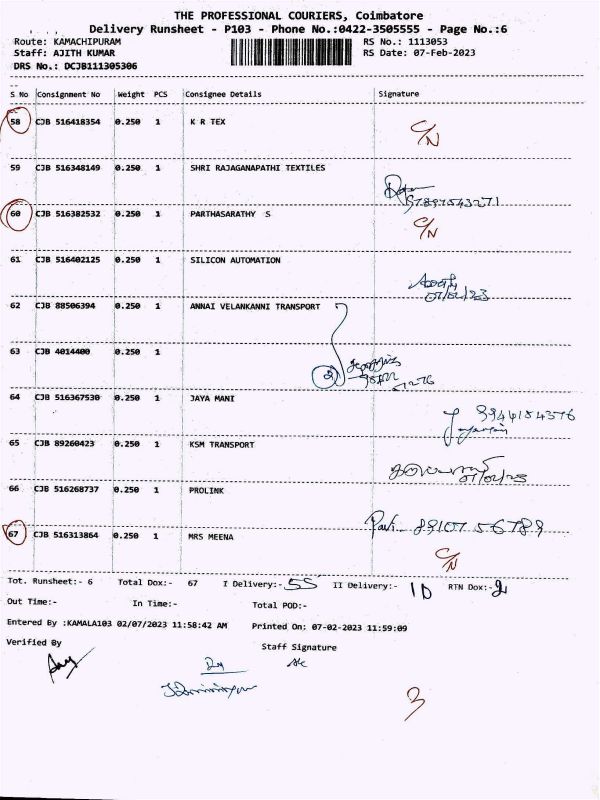 THE PROFESSIONAL COURIERS, Coimbatore
Delivery Runsheet - P103 - Phone No.:0422-3505555 - Page No.:6
Route: KAMACHIPURAM RS No.: 1113053
Staff: AJITH KUMAR RS Date: 07-Feb-2023
DRS No.: DCJB111305306
S No Consignment No Weight PCS Consignee Details Signature
58 CJB 516418354 0.250 1 K R TEX C/N
59 CJB 516348149 0.250 1 SHRI RAJAGANAPATHI TEXTILES
60 CJB 516382532 0.250 1 PARTHASARATHY S C/N
61 CJB 516402125 0.250 1 SILICON AUTOMATION
07/02/23
62 CJB 88506394 0.250 1 ANNAI VELANKANNI TRANSPORT
63 CJB 4014400 0.250 1
2
64 CJB 516367530 0.250 1 JAYA MANI
65 CJB 89260423 0.250 1 KSM TRANSPORT
07/02/23
66 CJB 516268737 0.250 1 PROLINK
67 CJB 516313864 0.250 1 MRS MEENA C/N
Tot. Runsheet:- 6 Total Dox:- 67 I Delivery:- 55 II Delivery:- 10 RTN Dox:- 2
Out Time:- In Time:- Total POD:-
Entered By :KAMALA103 02/07/2023 11:58:42 AM Printed On: 07-02-2023 11:59:09
Verified By Staff Signature
3